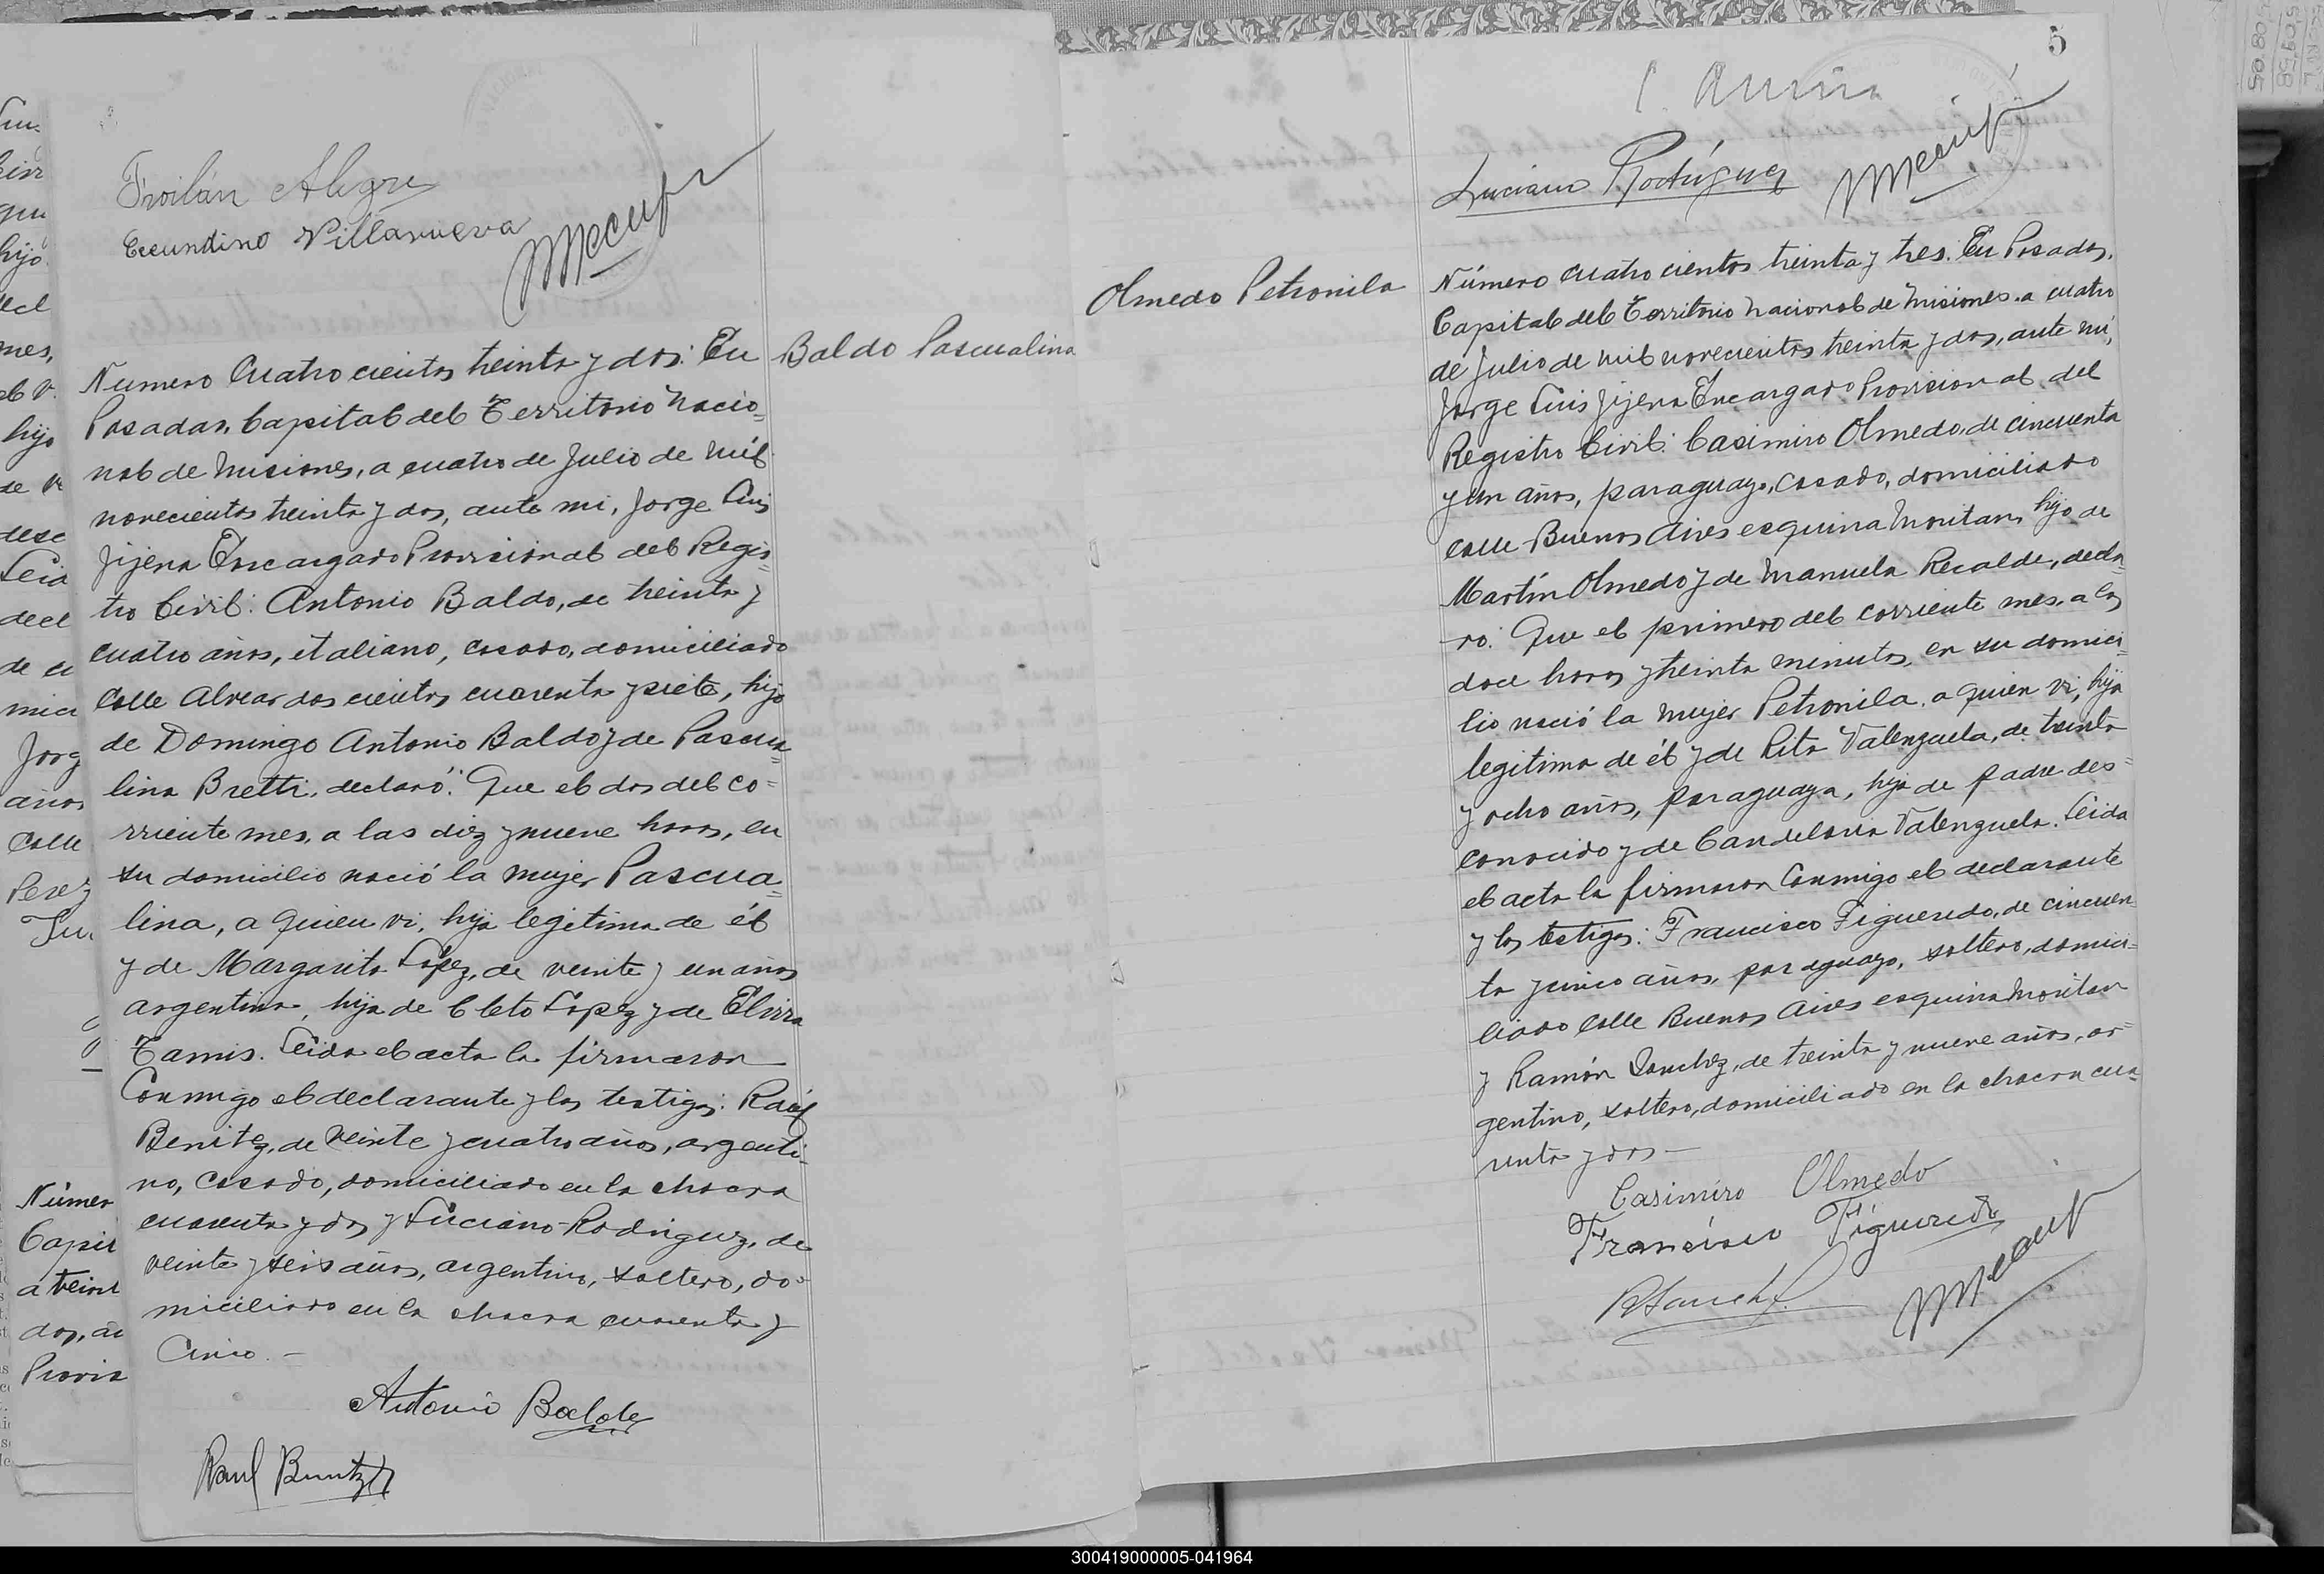 Froilán Alegre
Secundino Villanueva
Número Cuatrocientos treinta y dos: En
Posadas, Capital del Territorio Nacio=
nal de Misiones, a cuatro de Julio de mil
novecientos treinta y dos, ante mi, Jorge Luis
Jijena Encargado Provisional del Regis=
tro Civil: Antonio Baldo, de treinta y
cuatro años, italiano, casado, domiciliado
calle Alvear dos cientos cuarenta y siete, hijo
de Domingo Antonio Baldo y de Pascua=
lina Bretti, declaró: Que el dos del co=
rriente mes, a las diez y nueve horas, en
su domicilio nació la mujer Pascua=
lina, a quien vi, hija legitima de él
y de Margarita López, de veinte y un años
argentina, hija de Cleto López y de Elvira
Tamis. Leida el acta la firmaron
Conmigo el declarante y los testigos: Raúl
Benitez, de veinte y cuatro años, argenti=
no, casado, domiciliado en la chacra
cuarenta y dos y Luciano Rodriguez, de
veinte y seis años, argentino, soltero, do=
miciliado en la chacra cuarenta y
Cinco.-
Antonio Baldo
Raul Benitez
Baldo Pascualina
5
Luciano Rodríguez
Olmedo Petronila
Número cuatro cientos treinta y tres: En Posadas,
Capital del Territorio Nacional de Misiones, a cuatro
de Julio de mil novecientos treinta y dos, ante mi,
Jorge Luis Jijena Encargado Provisional del
Registro Civil: Casimiro Olmedo, de cincuenta
y un años, paraguayo, casado, domiciliado
calle Buenos Aires esquina Moritan, hijo de
Martín Olmedo y de Manuela Recalde, decla=
ró: Que el primero del corriente mes, a las
doce horas y treinta minutos, en su domici=
lio nació la mujer Petronila, a quien vi, hija
legitima de él y de Rita Valenzuela, de treinta
y ocho años, paraguaya, hija de padre des=
conocido y de Candelaria Valenzuela. Leida
el acta la firmaron Conmigo el declarante
y los testigos: Francisco Figueredo, de cincuen=
ta y cinco años, paraguayo, soltero, domici=
liado calle Buenos Aires esquina Moritan
y Ramón Sanchez, de treinta y nueve años, ar=
gentino, soltero, domiciliado en la chacra cua=
renta y dos -
Casimiro Olmedo
Francisco Figueredo
RSanchez
300419000005-041964